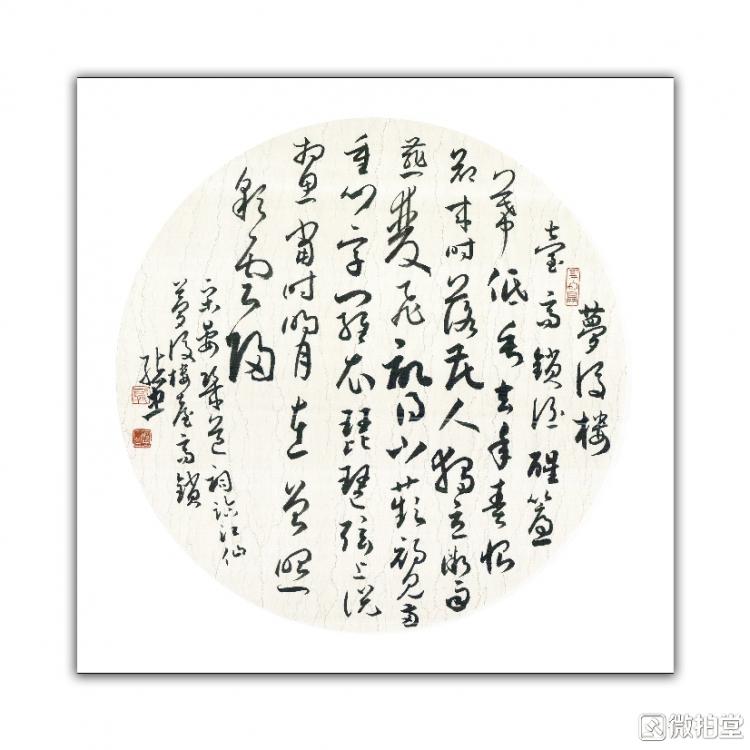 夢後樓
臺高鎖酒醒簾
幕低垂去年春恨
却来时落花人獨立微雨
燕雙飛記得小蘋初見兩
重心字羅衣琵琶弦上説
相思當时明月在曾照
彩雲歸
宋晏幾道詞臨江仙
夢後樓臺高鎖
微拍堂